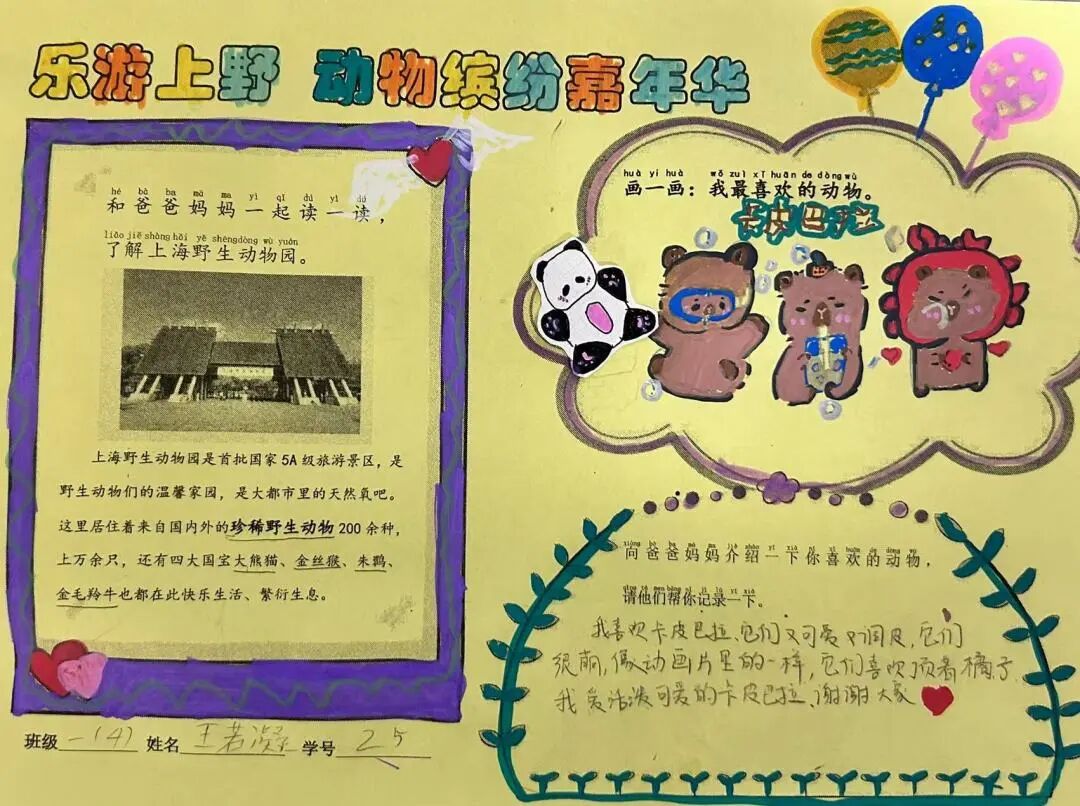 乐游上野 动物缤纷嘉年华
hé bà ba mā ma yì qǐ dú yì dú
和爸爸妈妈一起读一读，
liǎo jiě shàng hǎi yě shēng dòng wù yuán
了解上海野生动物园。
上海野生动物园是首批国家5A级旅游景区，是
野生动物们的温馨家园，是大都市里的天然氧吧。
这里居住着来自国内外的珍稀野生动物200余种，
上万余只，还有四大国宝大熊猫、金丝猴、朱鹮、
金毛羚牛也都在此快乐生活、繁衍生息。
班级一(4) 姓名王若凝 学号25
huà yí huà wǒ zuì xǐ huān de dòng wù
画一画：我最喜欢的动物。
卡皮巴拉
xiàng bà ba mā ma jiè shào yí xià nǐ xǐ huān de dòng wù
向爸爸妈妈介绍一下你喜欢的动物，
qǐng tā men bāng nǐ jì lù yí xià
请他们帮你记录一下。
我喜欢卡皮巴拉、它们又可爱又调皮，它们
很萌，像动画片里的一样，它们喜欢顶着橘子
我爱活泼可爱的卡皮巴拉、谢谢大家